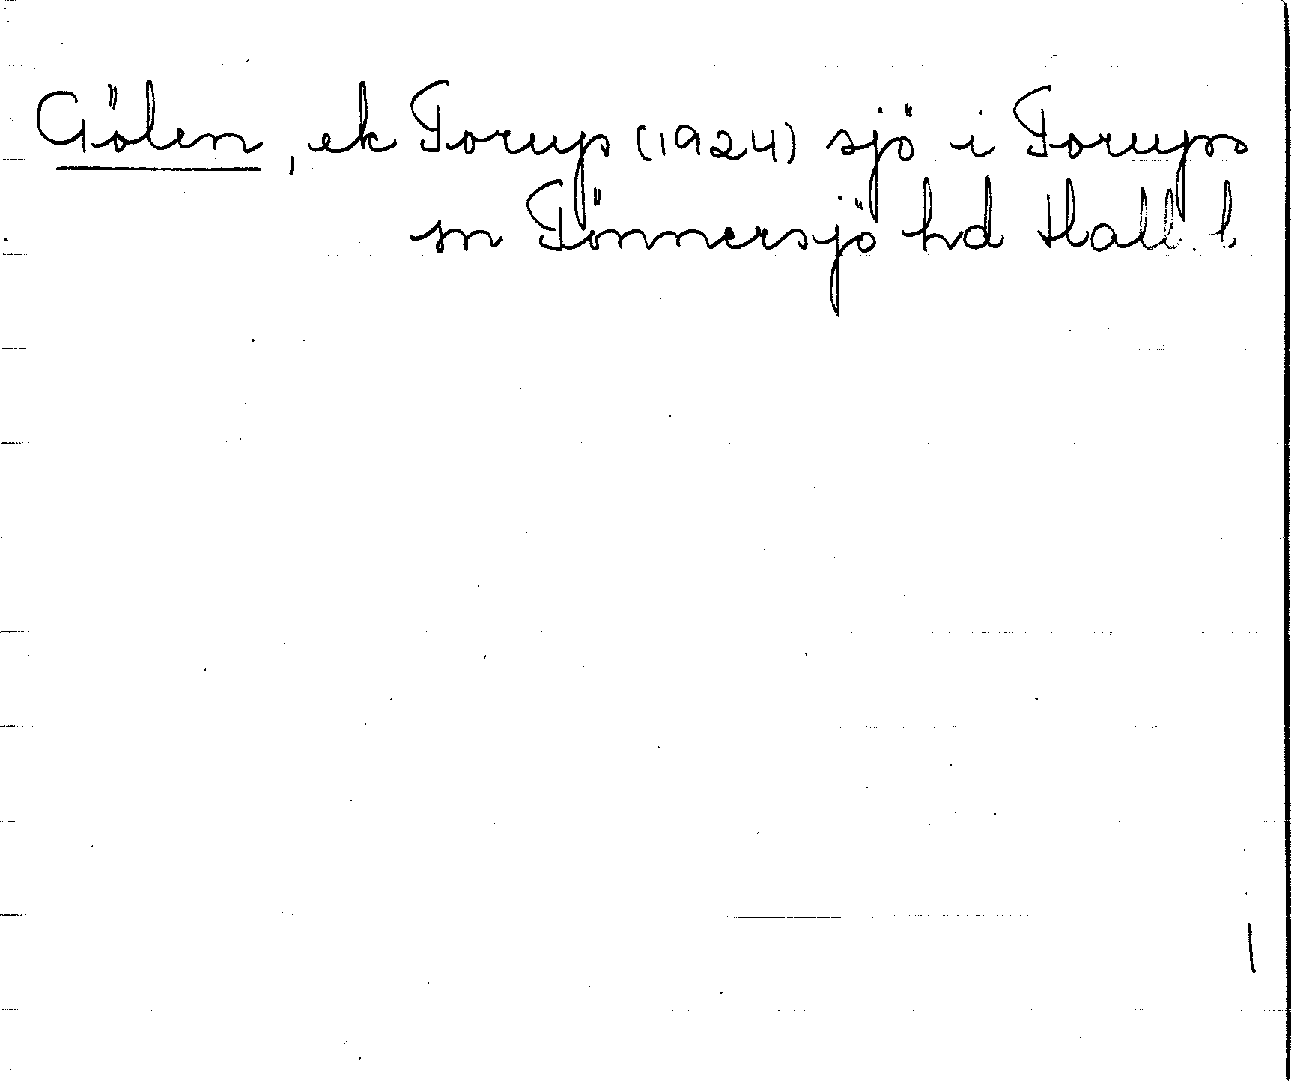 Gölen, ek Torup (1924) sjö i Torups
sn Tönnersjö hd Hall. l